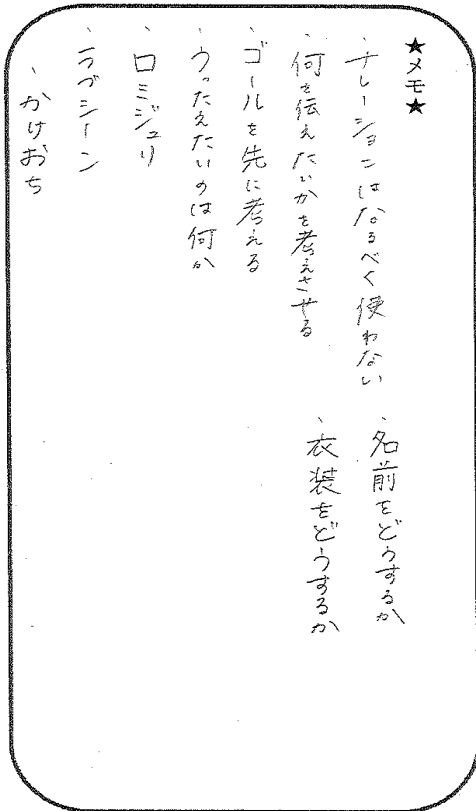 ★メモ★
・ナレーションはなるべく使わない
・名前をどうするか
・何を伝えたいかを考えさせる
・衣装をどうするか
・ゴールを先に考える
・うったえたいのは何か
・ロミジュリ
・ラブシーン
・かけおち